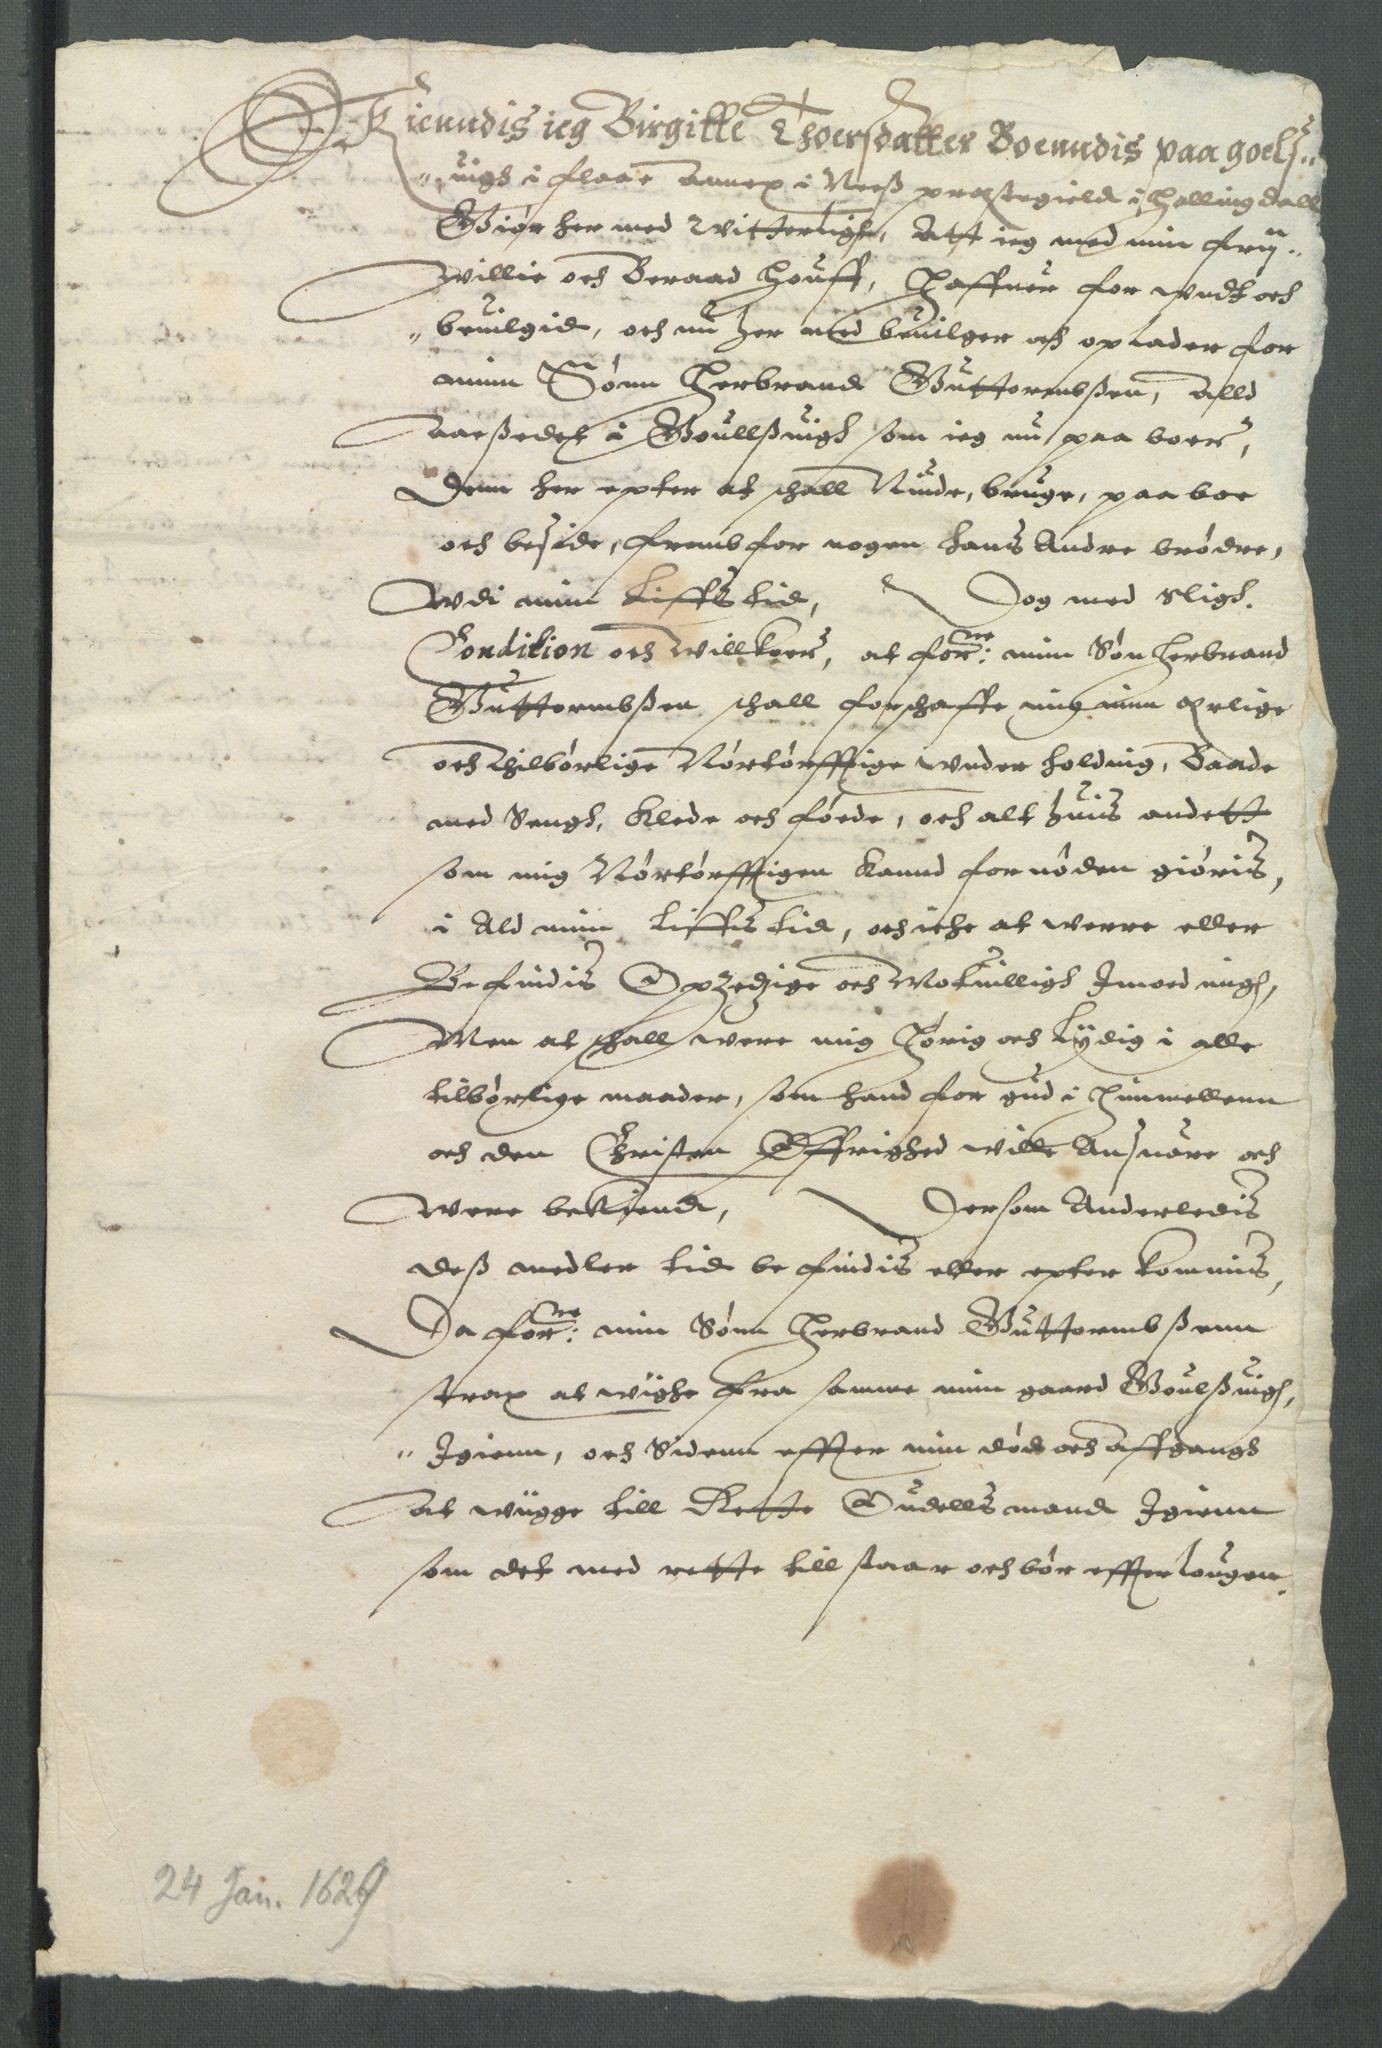 Kienndis ieg Birgitte Thoersdatter Boenndis paa goels¨
¨uigh i flaae annex i Neeß præstegield i hallingdall
Giør her med witterligt, Att ieg med min frij¨
willie och Beraad houff, haffuer for undt och
beuilgid, och nu her med beuilger och oplader for
minn Sønn Herbrand Guttormbßen, alld
aaeßedet i Goullßuigh som ieg nu paa boer,
Dem her epter at schall Niude, bruge, paa boe
och beside, fremb for nogen hans Andre brødre,
udi minn liffs tid, Dog med Sligh.
Condition och willkoer, at forne: minn Søn herbrand
Guttormbßen schall forschaffe mig min ærlige
och tilbørlige Nørtørfftige under holdnig, Baade
med Sengh, Klede och føede, och alt huis andett
som mig Nørtørfftigen kannd fornøden giøris,
i Ald minn liffs tid, och iche at werre eller
Befindis Opzedzige och Motuilligh Imoed migh,
Men at schall were mig Hørig och lydig i alle
tilbørlige maader, som hand for gud i himmellenn
och den Christen Øffrighed wille Ansuare och
were bekiendt, Dersom Anderledis
deß medler tid befindis eller epter kommis,
Da forne: min Sønn Herbrand Guttormbßenn
strax at wighe fra samme minn gaard Goulßuigh,
¨ Igienn, och Sidenn effter min død och affgangh
at wügge till Rette Oudells mand Igienn
som det med rette till staar och bør effter lougen.
24 Jan. 1629